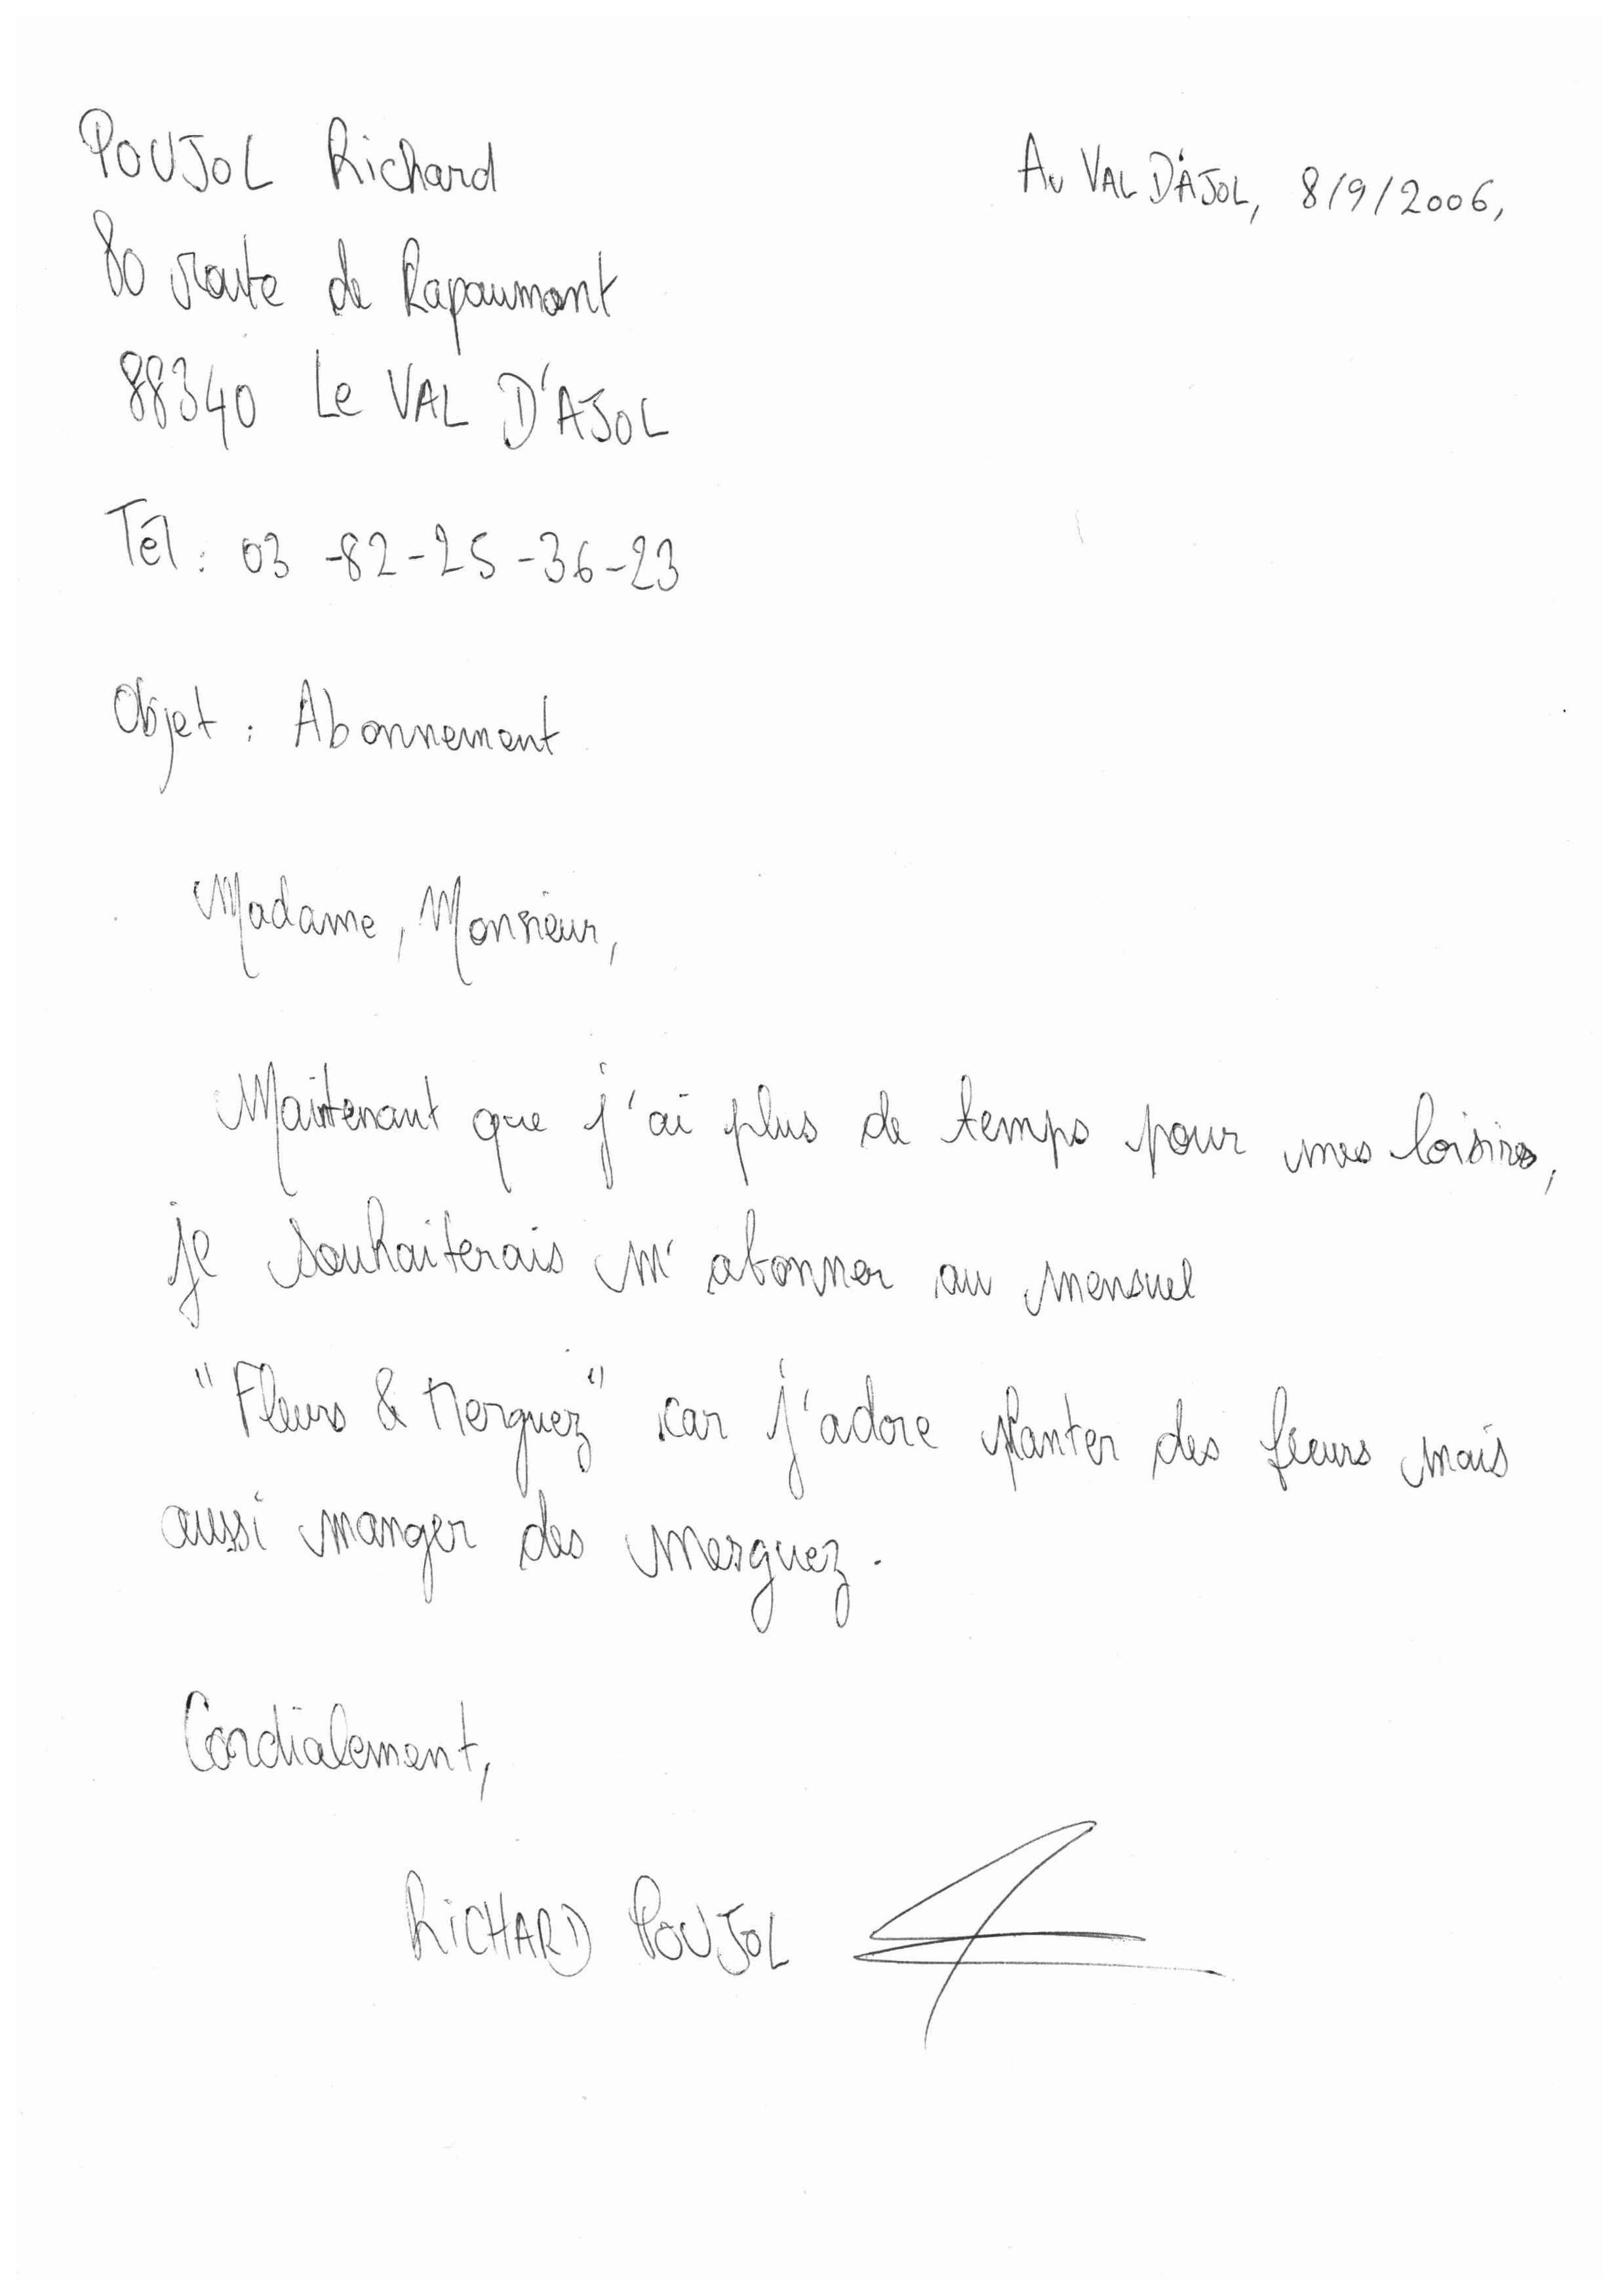 POUJOL Richard
Au VAL D'AJOL, 8/9/2006,
80 route de Rapaumont
88340 Le VAL D'AJOL
Tél : 03 -82-25-36-23
Objet : Abonnement
Madame, Monsieur,
Maintenant que j'ai plus de temps pour mes loisirs,
je souhaiterais m'abonner au mensuel
"Fleurs & Merguez" car j'adore planter des fleurs mais
aussi manger des merguez.
Cordialement,
RICHARD POUJOL